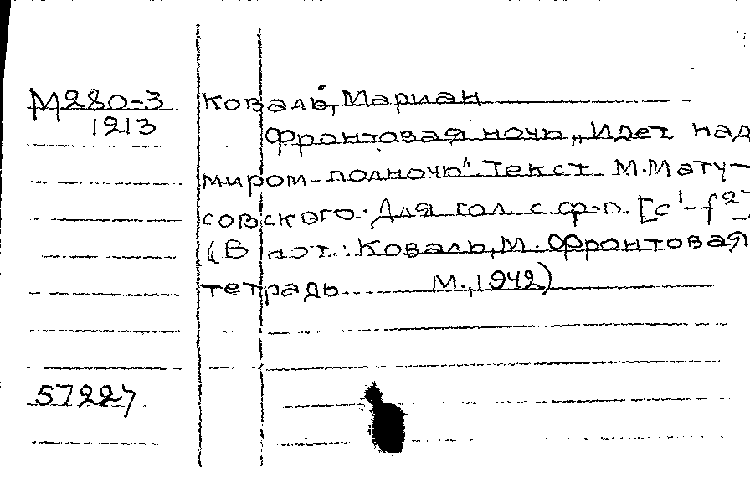 М280-3 Коваль, Мариан
1213
Фронтовая ночь „Идет над
миром полночь". Текст М. Мату-
совского. Для гол. с ф-п. [c¹-f²]
(В нот.: Коваль, М. Фронтовая
тетрадь.... М., 1942)
57227